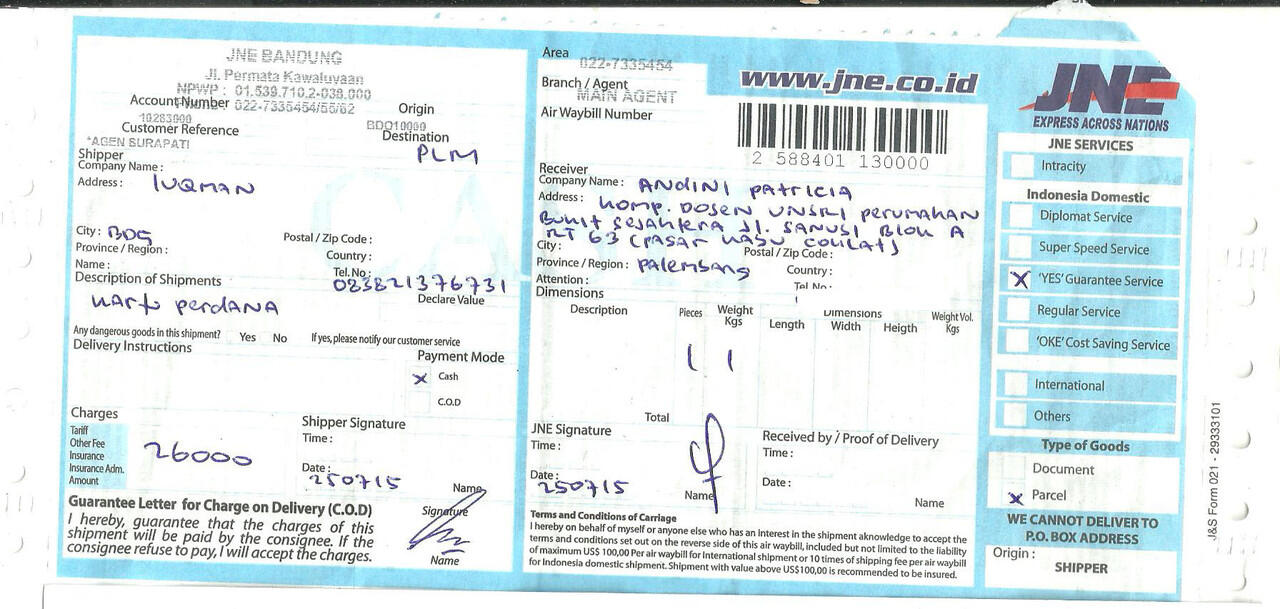 JNE BANDUNG
Jl. Permata Kawaluyaan
NPWP : 01.539.710.2-038.000
Account Number 022-7335454/55/62
Origin
10283000
BDO10000
Customer Reference
Destination
*AGEN SURAPATI
PLM
Shipper
Company Name :
Address : LUQMAN
City : BDG
Postal / Zip Code :
Province / Region :
Country :
Name :
Tel. No : 083821376731
Description of Shipments
Declare Value
kartu perdana
Any dangerous goods in this shipment? Yes No If yes, please notify our customer service
Delivery Instructions
Payment Mode
x Cash
C.O.D
Charges
Shipper Signature
Tariff
Other Fee
Insurance
Insurance Adm.
Amount
26000
Time :
Date : 250715
Name
Guarantee Letter for Charge on Delivery (C.O.D)
I hereby, guarantee that the charges of this
shipment will be paid by the consignee. If the
consignee refuse to pay, I will accept the charges.
Signature
Name
Area
022-7335454
Branch / Agent
MAIN AGENT
Air Waybill Number
www.jne.co.id
2 588401 130000
Receiver
Company Name : ANDINI PATRICIA
Address : KOMP. DOSEN UNSRI PERUMAHAN
BUKIT SEJAHTERA Jl. SANUSI BLOK A
RT 63 (PASAR KABU COKLAT)
City :
Postal / Zip Code :
Province / Region : PALEMBANG
Country :
Attention :
Tel No :
Dimensions
Description
Pieces
Weight Kgs
Dimensions
Length Width Heigth
Weight Vol. Kgs
1 1
Total
JNE Signature
Time :
Date : 250715
Name
Received by / Proof of Delivery
Time :
Date :
Name
Terms and Conditions of Carriage
I hereby on behalf of myself or anyone else who has an interest in the shipment aknowledge to accept the
terms and conditions set out on the reverse side of this air waybill, included but not limited to the liability
of maximum US$ 100,00 Per air waybill for International shipment or 10 times of shipping fee per air waybill
for Indonesia domestic shipment. Shipment with value above US$100,00 is recommended to be insured.
JNE
EXPRESS ACROSS NATIONS
JNE SERVICES
Intracity
Indonesia Domestic
Diplomat Service
Super Speed Service
X 'YES' Guarantee Service
Regular Service
'OKE' Cost Saving Service
International
Others
Type of Goods
Document
x Parcel
WE CANNOT DELIVER TO
P.O. BOX ADDRESS
Origin :
SHIPPER
J&S Form 021 - 29333101